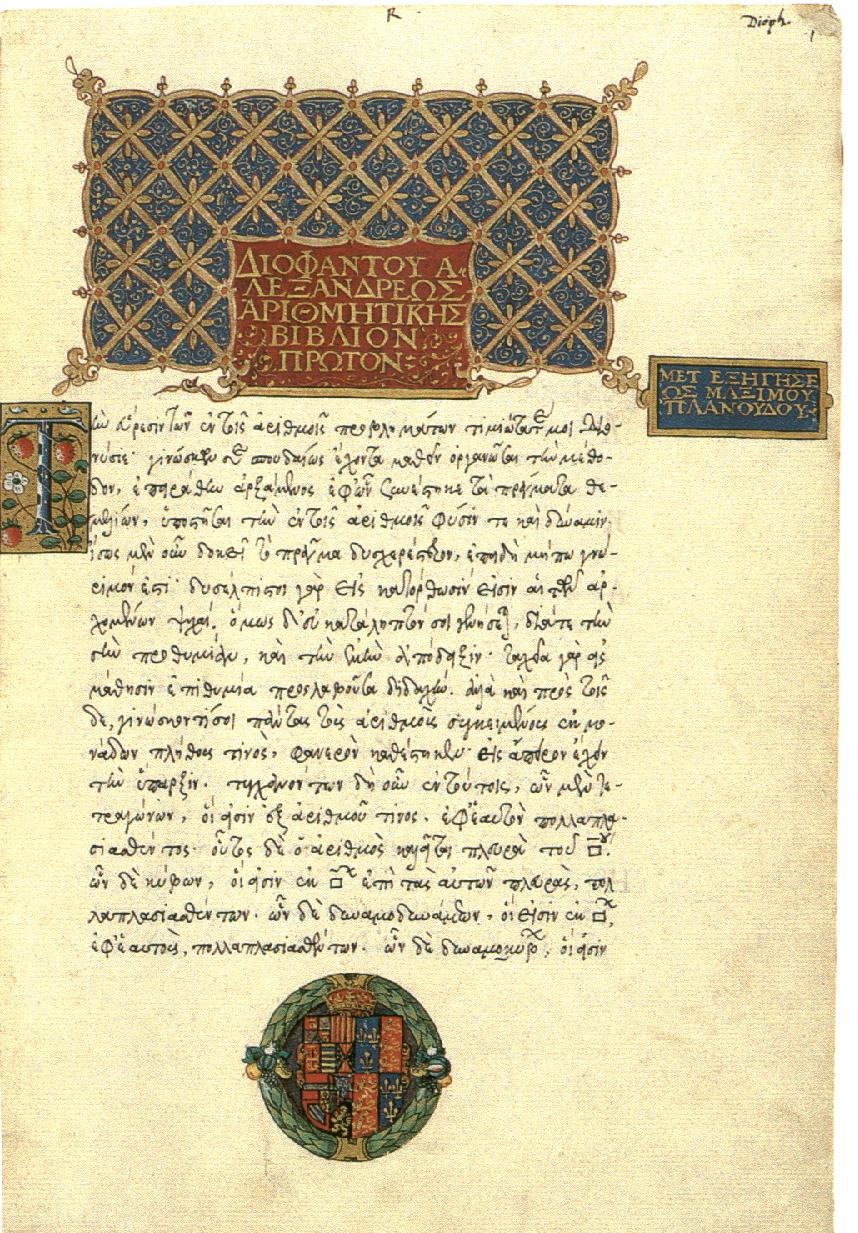 R
Dioph.
1
ΔΙΟΦΑΝΤΟΥ Α
ΛΕΞΑΝΔΡΕΩΣ
ΑΡΙΘΜΗΤΙΚΗΣ
ΒΙΒΛΙΟΝ
ΠΡΩΤΟΝ
ΜΕΤ ΕΞΗΓΗΣΕ
ΩΣ ΜΑΞΙΜΟΥ
ΠΛΑΝΟΥΔΟΥ
Τὴν εὕρεσιν τῶν ἐν τοῖς ἀριθμοῖς προβλημάτων τιμιώτατέ μοι Διο-
νύσιε· γινώσκων σε σπουδαίως ἔχοντα μαθεῖν ὀργανῶσαι τὴν μέθο-
δον, ἐπειράθην ἀρξάμενος ἀφ' ὧν συνέστηκε τὰ πράγματα θε-
μελίων, ὑποστῆσαι τὴν ἐν τοῖς ἀριθμοῖς φύσιν τε καὶ δύναμιν.
ἴσως μὲν οὖν δοκεῖ τὸ πρᾶγμα δυσχερέστερον, ἐπειδὴ μήπω γνώ-
ριμόν ἐστι· δυσέλπιστοι γὰρ εἰς κατόρθωσίν εἰσιν αἱ τῶν ἀρ-
χομένων ψυχαί. ὅμως δ' εὐκατάληπτόν σοι γενήσεται, διά τε τὴν
σὴν προθυμίαν, καὶ τὴν ἐμὴν ἀπόδειξιν· ταχεῖα γὰρ εἰς
μάθησιν ἐπιθυμία προσλαβοῦσα διδαχήν. ἀλλὰ καὶ πρὸς τοῖς
δε, γινώσκοντί σοι πάντας τοὺς ἀριθμοὺς συγκειμένους ἐκ μο-
νάδων πλήθους τινός, φανερὸν καθέστηκεν εἰς ἄπειρον ἔχειν
τὴν ὕπαρξιν. τυγχανόντων δὴ οὖν ἐν τούτοις, ὧν μὲν τε-
τραγώνων, οἵ εἰσιν ἐξ ἀριθμοῦ τινος. ἐφ' ἑαυτὸν πολλαπλα-
σιασθέντος· οὗτος δὲ ὁ ἀριθμὸς καλεῖται πλευρὰ τοῦ □ου.
ὧν δὲ κύβων, οἵ εἰσιν ἐκ □ων ἐπὶ τὰς αὐτῶν πλευράς, πολ
λαπλασιασθέντων. ὧν δὲ δυναμοδυνάμεων, οἵ εἰσιν ἐκ □ων,
ἐφ' ἑαυτοὺς, πολλαπλασιασθέντων. ὧν δὲ δυναμοκύβων, οἵ εἰσιν